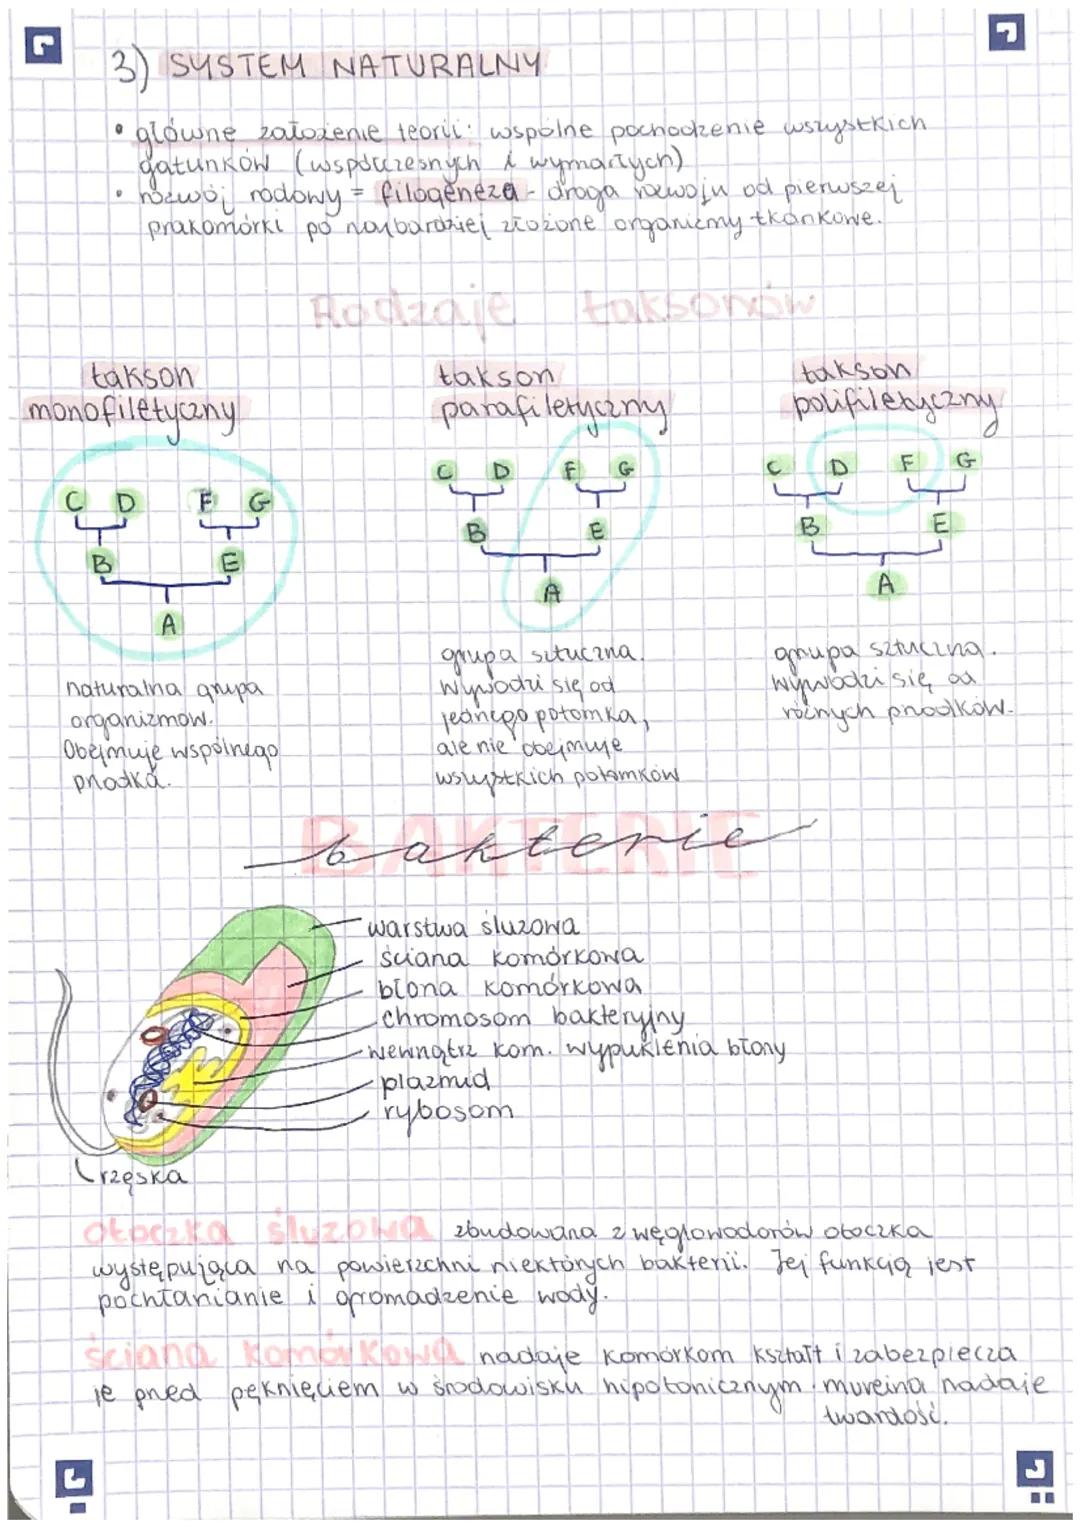 3) SYSTEM NATURALNY
• główne założenie teorii: wspólne pochodzenie wszystkich
gatunków (współczesnych i wymarłych)
• rozwój rodowy = filogeneza - droga rozwoju od pierwszej
prakomórki po najbardziej złożone organizmy tkankowe.
Rodzaje taksonów
takson
monofiletyczny
C D F G
B E
A
naturalna grupa
organizmów.
Obejmuje wspólnego
przodka.
takson
parafiletyczny
C D F G
B E
A
grupa sztuczna.
Wywodzi się od
jednego potomka,
ale nie obejmuje
wszystkich potomków
takson
polifiletyczny
C D F G
B E
A
grupa sztuczna.
wywodzi się od
różnych przodków.
BAKTERIE
bakterie
warstwa śluzowa
ściana komórkowa
błona komórkowa
chromosom bakteryjny
wewnątrz kom. wypuklenia błony
plazmid
rybosom
rzęska
otoczka śluzowa zbudowana z węglowodorów otoczka
występująca na powierzchni niektórych bakterii. Jej funkcją jest
pochłanianie i gromadzenie wody.
ściana komórkowa nadaje komórkom kształt i zabezpiecza
je przed pęknięciem w środowisku hipotonicznym. mureina nadaje
twardość.